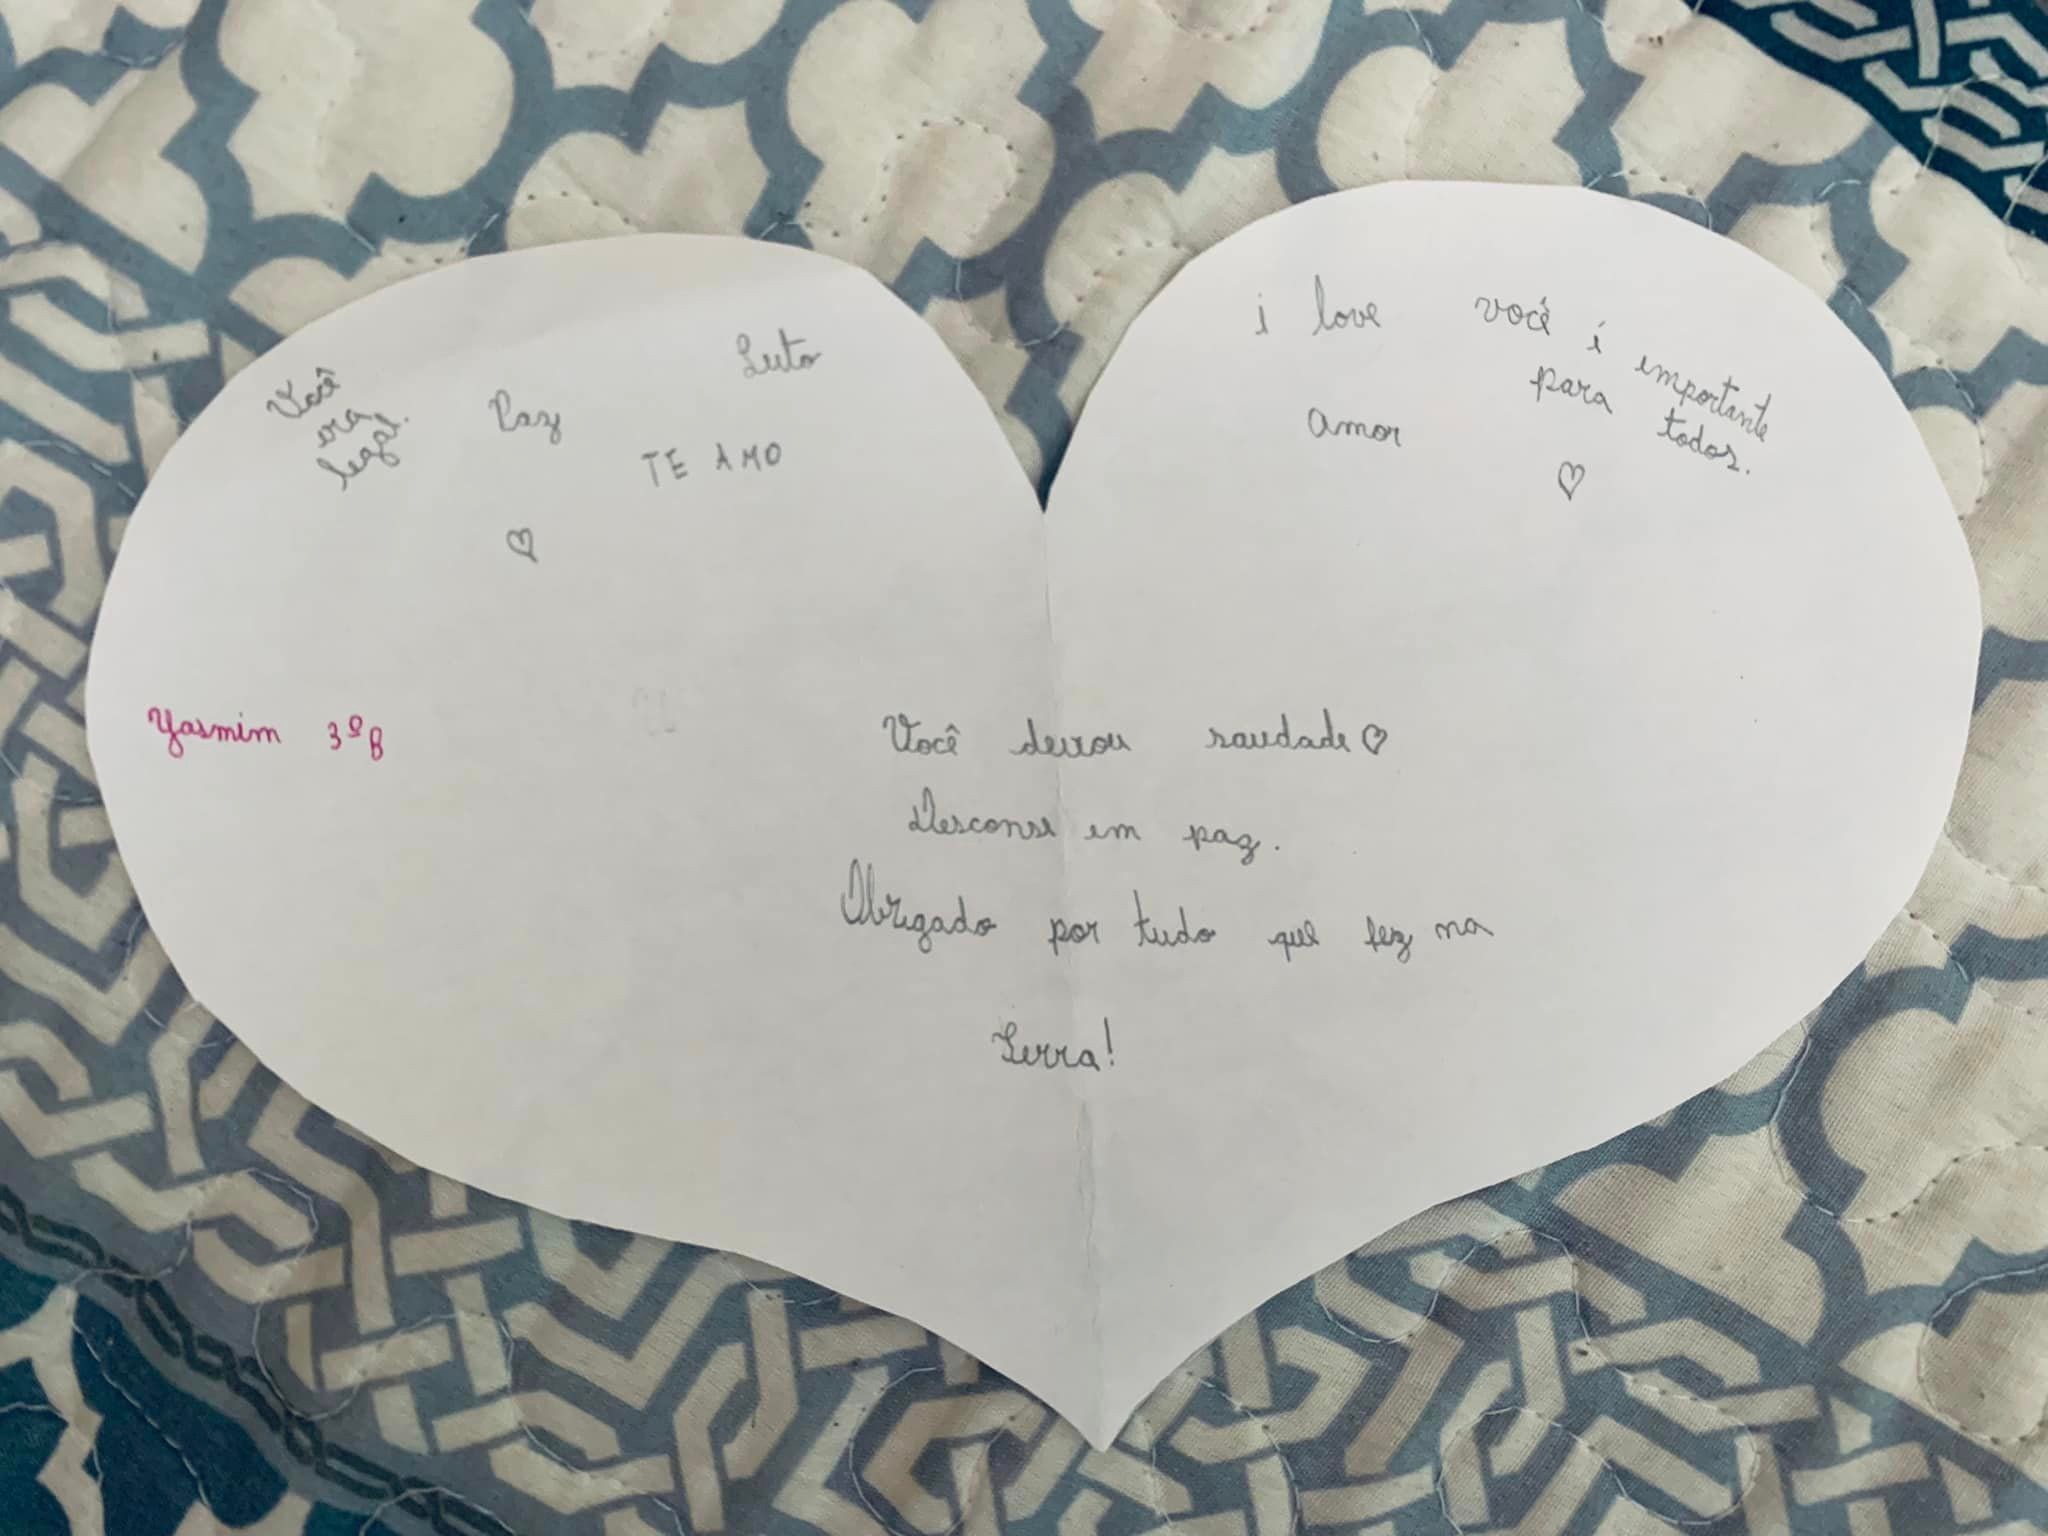 Você
era
legal.
Paz
Luto
TE AMO
♡
i love
Amor
você é importante
para todos.
♡
Yasmim 3ºB
Você deixou saudade♡
Desconse em paz.
Obrigado por tudo que fez na
Terra!